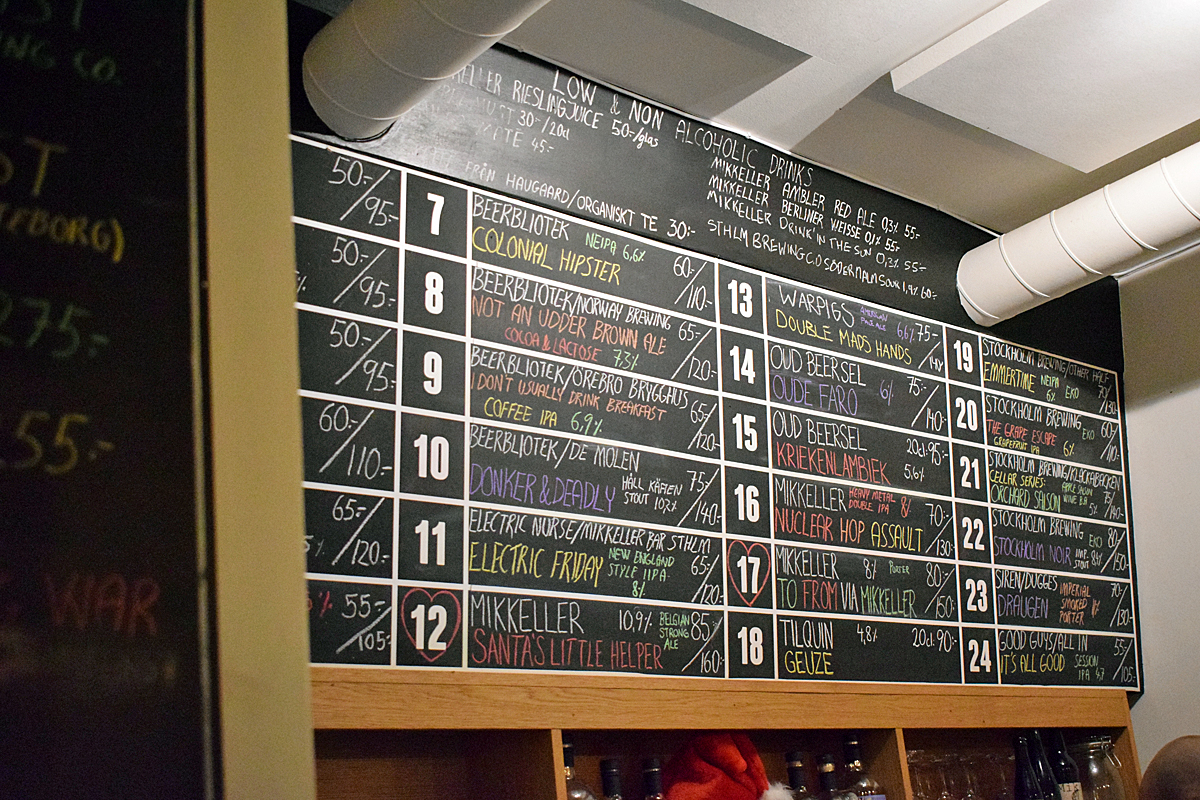 ST
NG CO.
ST
TEBORG)
275:-
55:-
WAR
LOW & NON ALCOHOLIC DRINKS
KELLER RIESLINGJUICE 50:-/glas
30:-/20cl
TE 45:-
FRÅN HAUGAARD/ORGANISKT TE 30:-
MIKKELLER AMBLER RED ALE 0,3% 55:-
MIKKELLER BERLINER WEISSE 0,1% 55:-
MIKKELLER DRINK'IN THE SUN 0,3% 55:-
STHLM BREWING CO SÖDERMALMSOUR 1,9% 60:-
50:-/95:-
50:-/95:-
50:-/95:-
60:-/110:-
65:-/120:-
55:-/105:-
7
BEERBLIOTEK NEIPA 6,6% 60:-/110:-
COLONIAL HIPSTER
8
BEERBLIOTEK/NORWAY BREWING 65:-/120:-
NOT AN UDDER BROWN ALE
COCOA & LACTOSE 7,3%
9
BEERBLIOTEK/ÖREBRO BRYGGHUS 65:-/120:-
I DON'T USUALLY DRINK BREAKFAST
COFFEE IPA 6,9%
10
BEERBLIOTEK/DE MOLEN 75:-/140:-
DONKER & DEADLY HALL KÄFTEN
STOUT 10,2%
11
ELECTRIC NURSE/MIKKELLER BAR STHLM 65:-/120:-
ELECTRIC FRIDAY NEW ENGLAND
STYLE IIPA
8%
12
MIKKELLER 10,9% BELGIAN STRONG ALE 85:-/160:-
SANTA'S LITTLE HELPER
13
WARPIGS AMERICAN PALE ALE 6,6% 75:-/140:-
DOUBLE MADS HANDS
14
OUD BEERSEL 6% 75:-/140:-
OUDE FARO
15
OUD BEERSEL 20cl:95:-
KRIEKENLAMBIEK 5,6%
16
MIKKELLER HEAVY METAL DOUBLE IPA 8% 70:-/130:-
NUCLEAR HOP ASSAULT
17
MIKKELLER 8% PORTER 80:-/150:-
TO FROM VIA MIKKELLER
18
TILQUIN 4,8% 20cl:90:-
GEUZE
19
STOCKHOLM BREWING/OTHER HALF 70/130:-
EMMERTIME NEIPA EKO
6%
20
STOCKHOLM BREWING EKO 60/110:-
THE GRAPE ESCAPE
GRAPEFRUIT IPA 6%
21
STOCKHOLM BREWING/KLACKABACKEN
CELLAR SERIES: 75/140:-
ORCHARD SAISON 5%
22
STOCKHOLM BREWING EKO 80/150:-
STOCKHOLM NOIR IMP. STOUT
23
SIREN/DUGGES 70:-/130:-
DRAUGEN IMPERIAL SMOKED PORTER
24
GOOD GUYS/ALL IN 55:-/105:-
IT'S ALL GOOD SESSION IPA